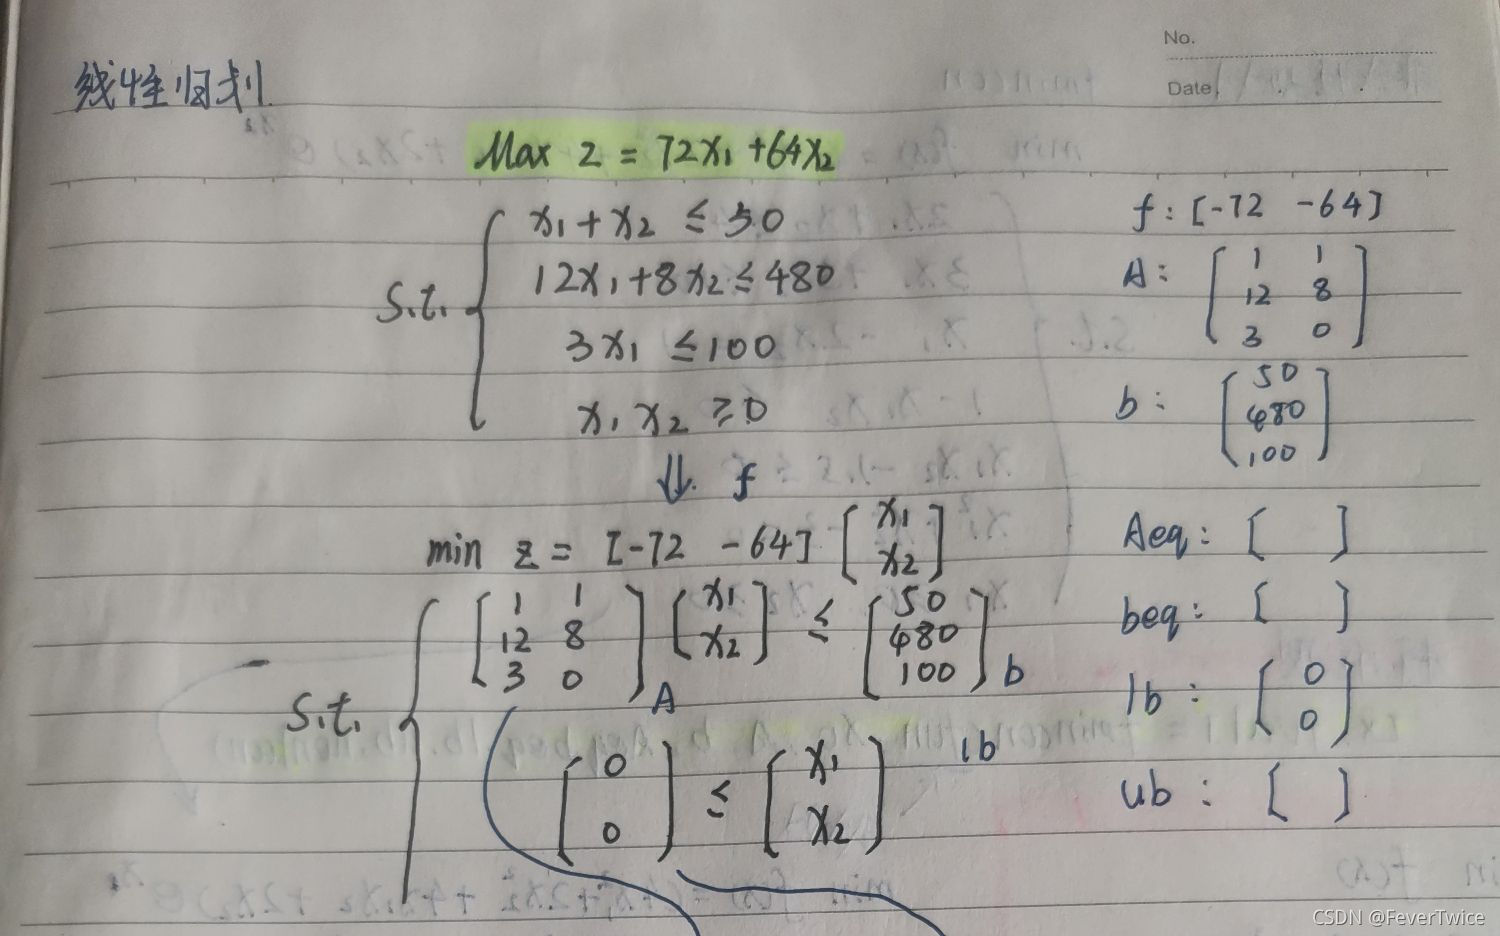 No.
Date
线性归划
Max z = 72x₁ + 64x₂
s.t. { x₁ + x₂ ≤ 50
12x₁ + 8x₂ ≤ 480
3x₁ ≤ 100
x₁ x₂ ≥ 0
⇓ f
min z = [-72 -64] [x₁ x₂]
s.t. { [1 1
12 8
3 0] A [x₁ x₂] ≤ [50 480 100] b
[0 0] ≤ [x₁ x₂] lb
f: [-72 -64]
A: [1 1
12 8
3 0]
b: [50
480
100]
Aeq: [ ]
beq: [ ]
lb: [0
0]
ub: [ ]
CSDN @FeverTwice